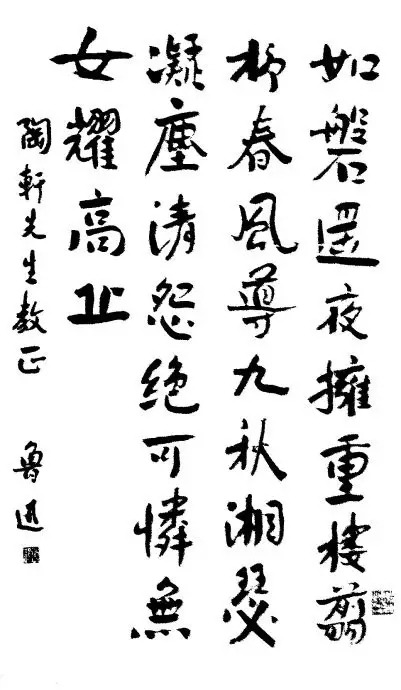 如磐遙夜擁重樓翦
柳春風導九秋湘瑟
凝塵清怨絕可憐無
女耀高丘
陶軒先生教正 魯迅